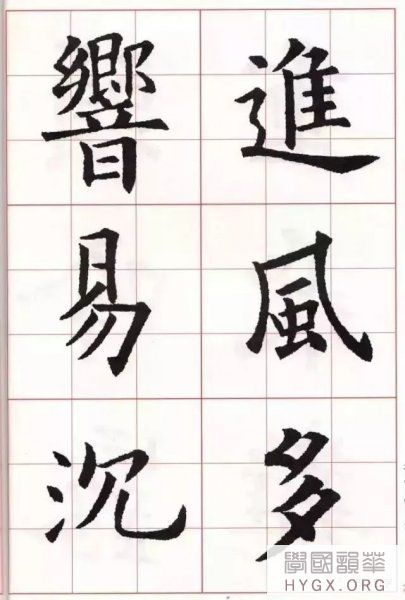 進風多
響易沉
華韻國學
HYGX.ORG